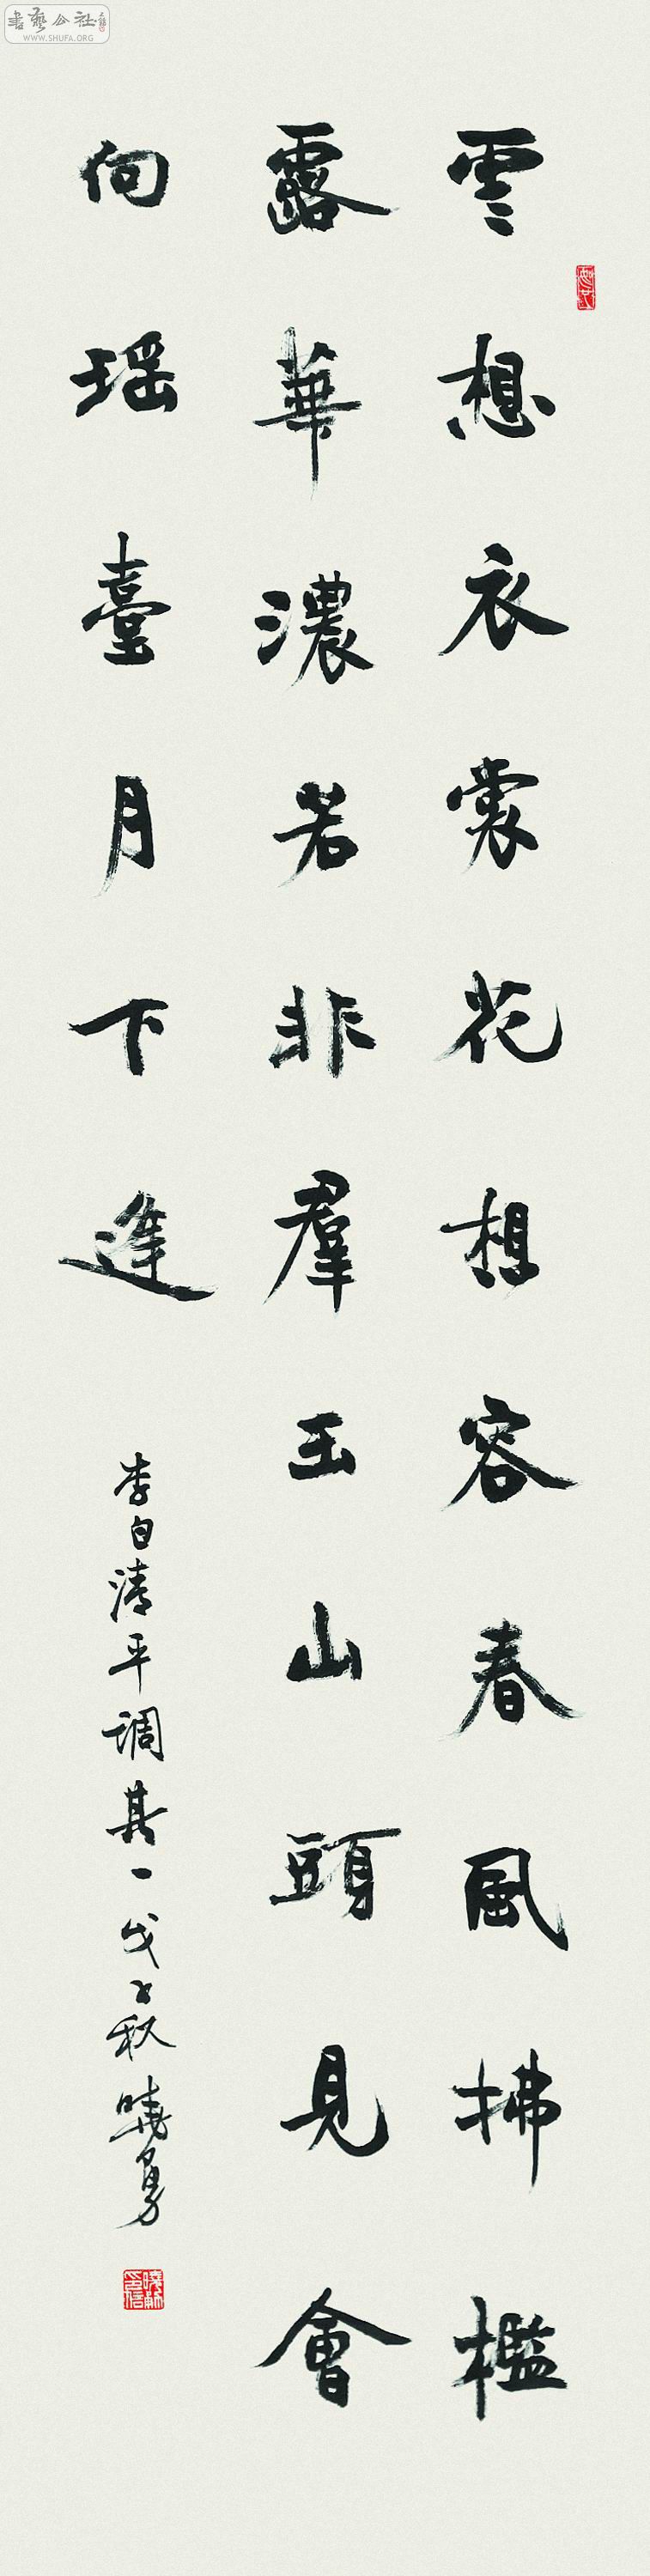 雲想衣裳花想容春風拂檻
露華濃若非羣玉山頭見會
向瑶臺月下逢
李白清平调其一戊子秋曉勇
書藝公社
WWW.SHUFA.ORG